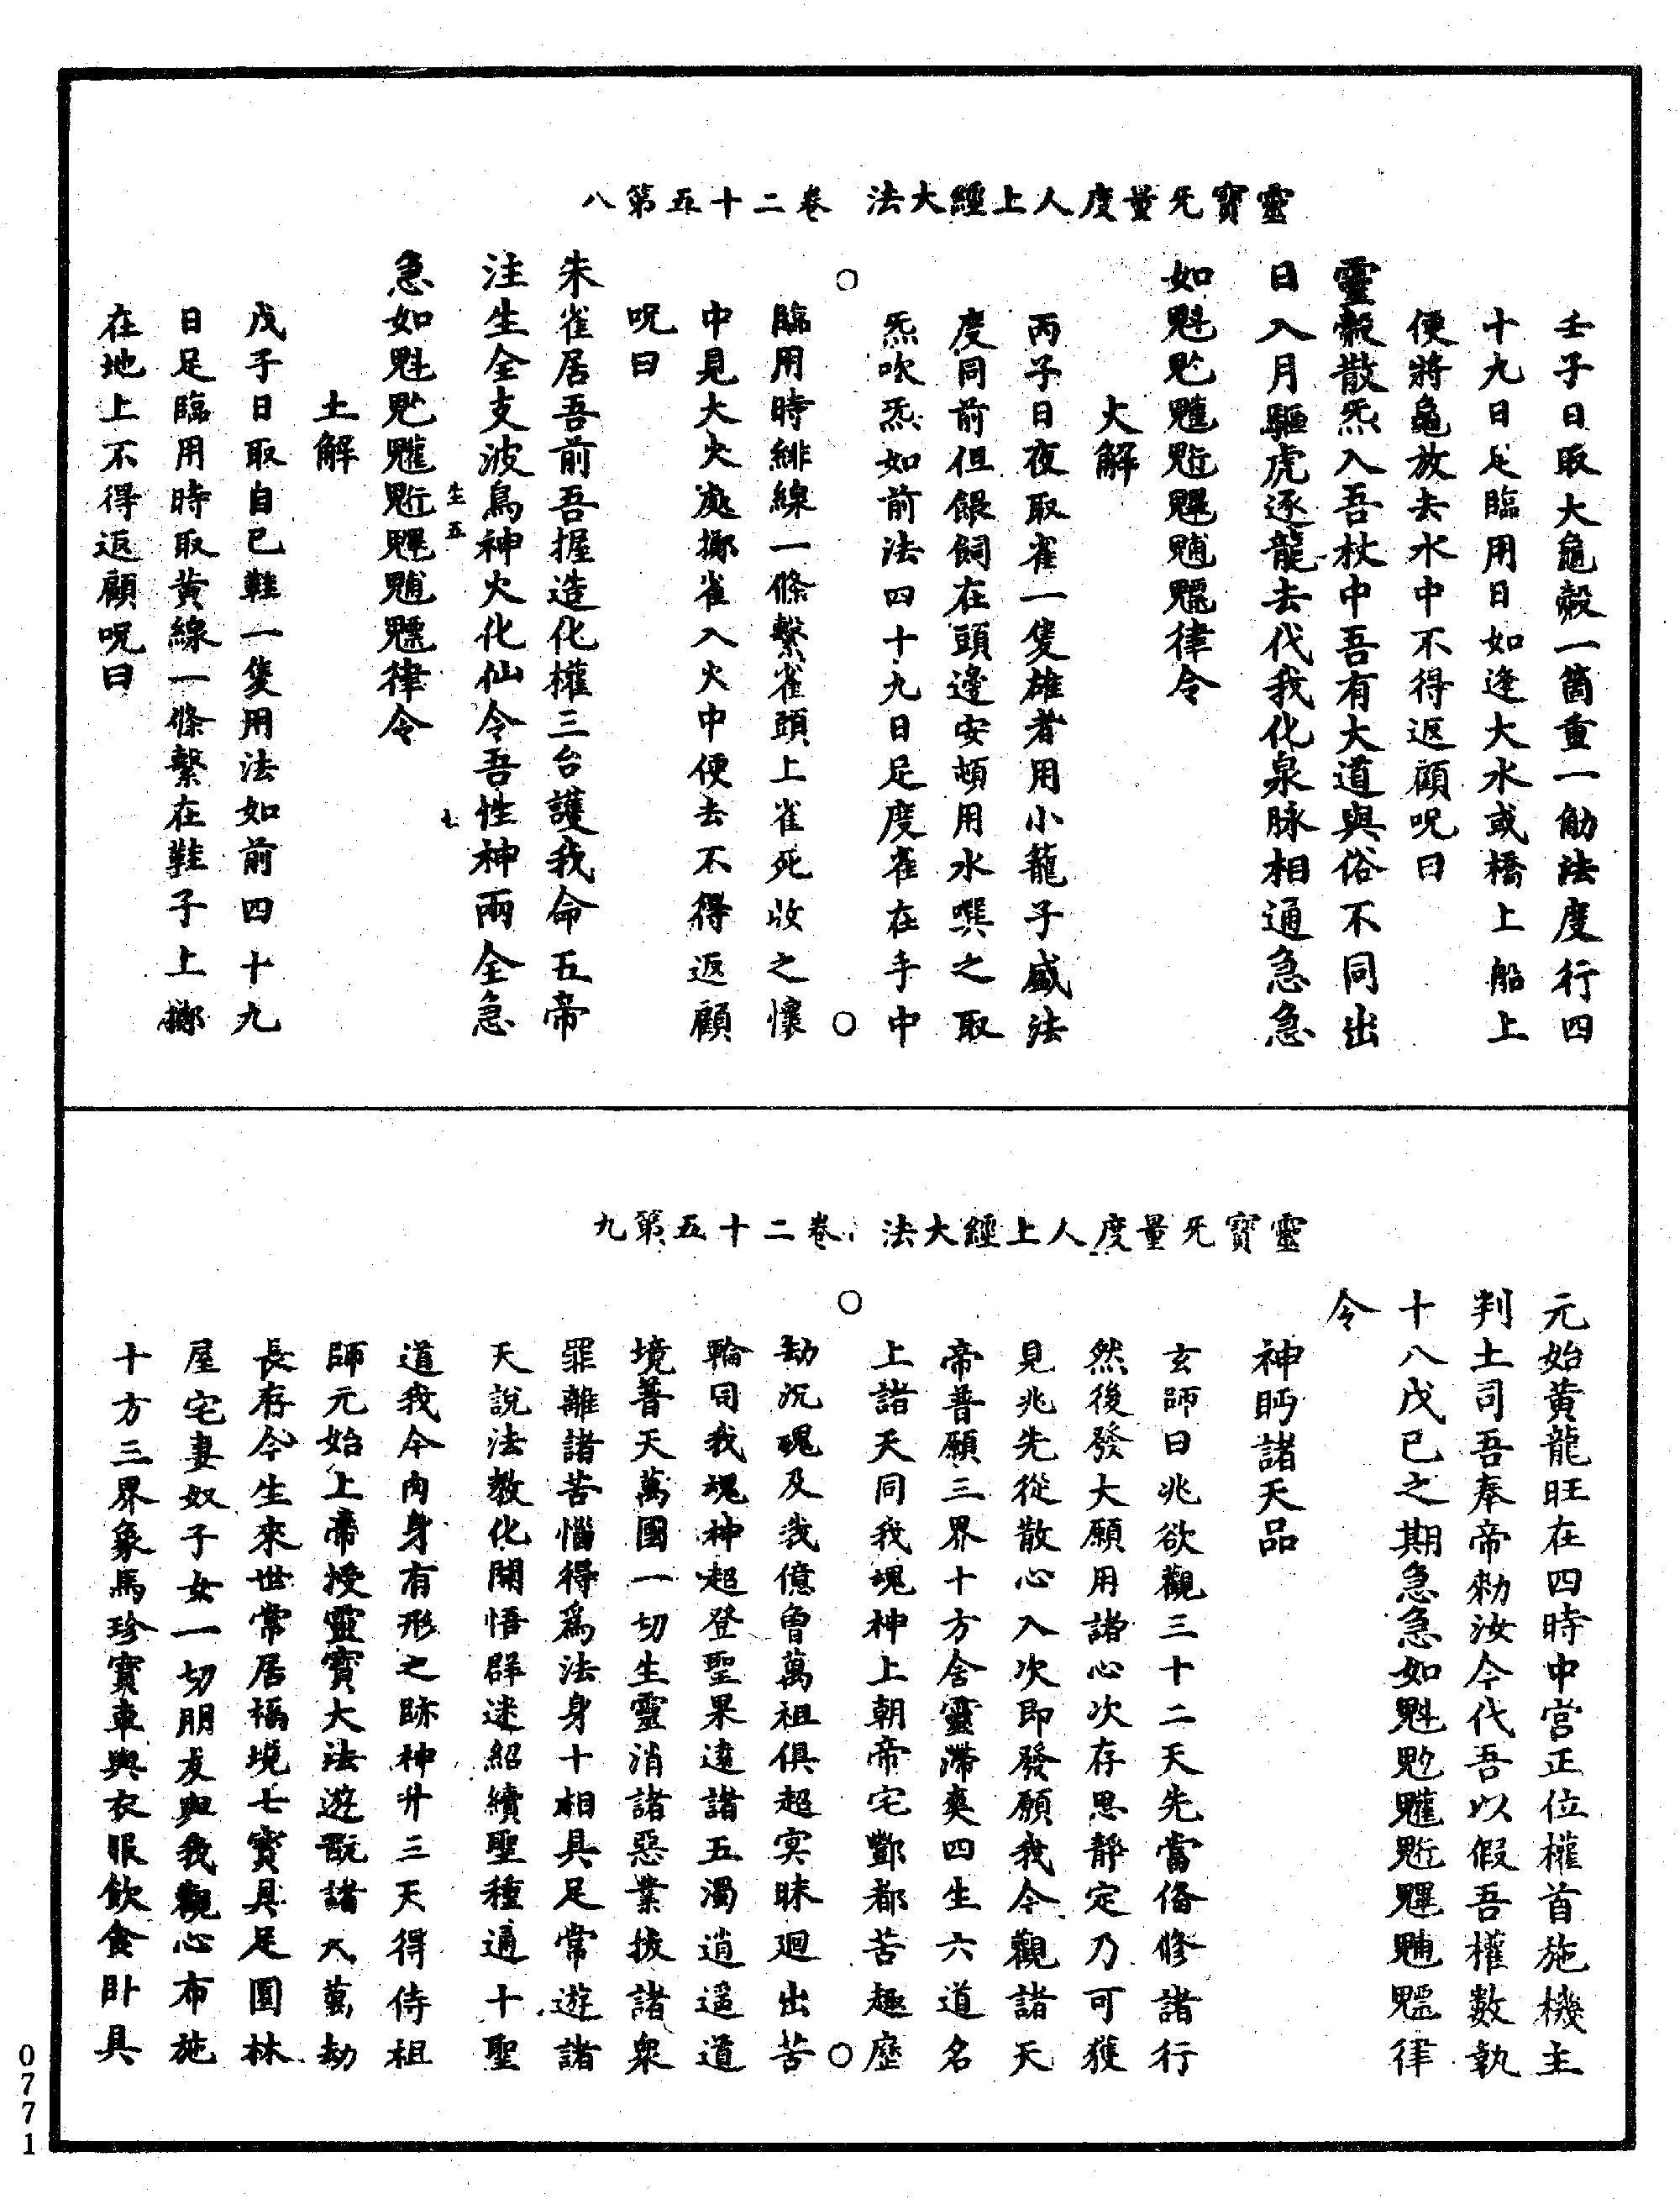 靈寶无量度人上經大法 卷二十五第八
壬子日取大龜殼一箇重一觔法度行四
十九日足臨用日如逢大水或橋上船上
便將龜放去水中不得返顧呪曰
靈龜散炁入吾杖中吾有大道與俗不同出
日入月驅虎逐龍去代我化泉脉相通急急
如魁𩲃䰢魓魒律令
火解
丙子日夜取雀一隻雄者用小籠子盛法
度同前但餵飼在頭邊安頓用水噀之取
炁吹炁如前法四十九日足度雀在手中
臨用時緋線一條繫雀頭上雀死收之懷
中見大火處擲雀入火中便去不得返顧
呪曰
朱雀居吾前吾握造化權三台護我命五帝
注生全支波鳥神火化仙令吾性神兩全急
急如魁律令
土解
戊子日取自已鞋一隻用法如前四十九
日足臨用時取黃線一條繫在鞋子上擲
在地上不得返顧呪曰
生五
七
靈寶无量度人上經大法 卷二十五第九
元始黃龍旺在四時中宮正位權首施機主
判土司吾奉帝勑汝今代吾以假吾權數執
十八戊已之期急急如魁律
令
神眄諸天品
玄師曰兆欲觀三十二天先當俻修諸行
然後發大願用諸心次存思靜定乃可獲
見兆先從散心入次即發願我今觀諸天
帝普願三界十方含靈滯爽四生六道名
上諸天同我魂神上朝帝宅酆都苦趣歷
劫沉魂及我億曾萬祖俱超冥昧迴出苦
輪同我魂神超登聖果遠諸五濁逍遥道
境普天萬國一切生靈消諸惡業拔諸衆
罪離諸苦惱得爲法身十相具足常遊諸
天說法教化開悟群迷紹續聖種通十聖
道我今肉身有形之跡神升三天得侍祖
師元始上帝授靈寶大法遊翫諸天萬劫
長存今生來世常居福境七寳具足園林
屋宅妻奴子女一切朋友與我觀心布施
十方三界象馬珍寳車輿衣服飲食卧具
0771